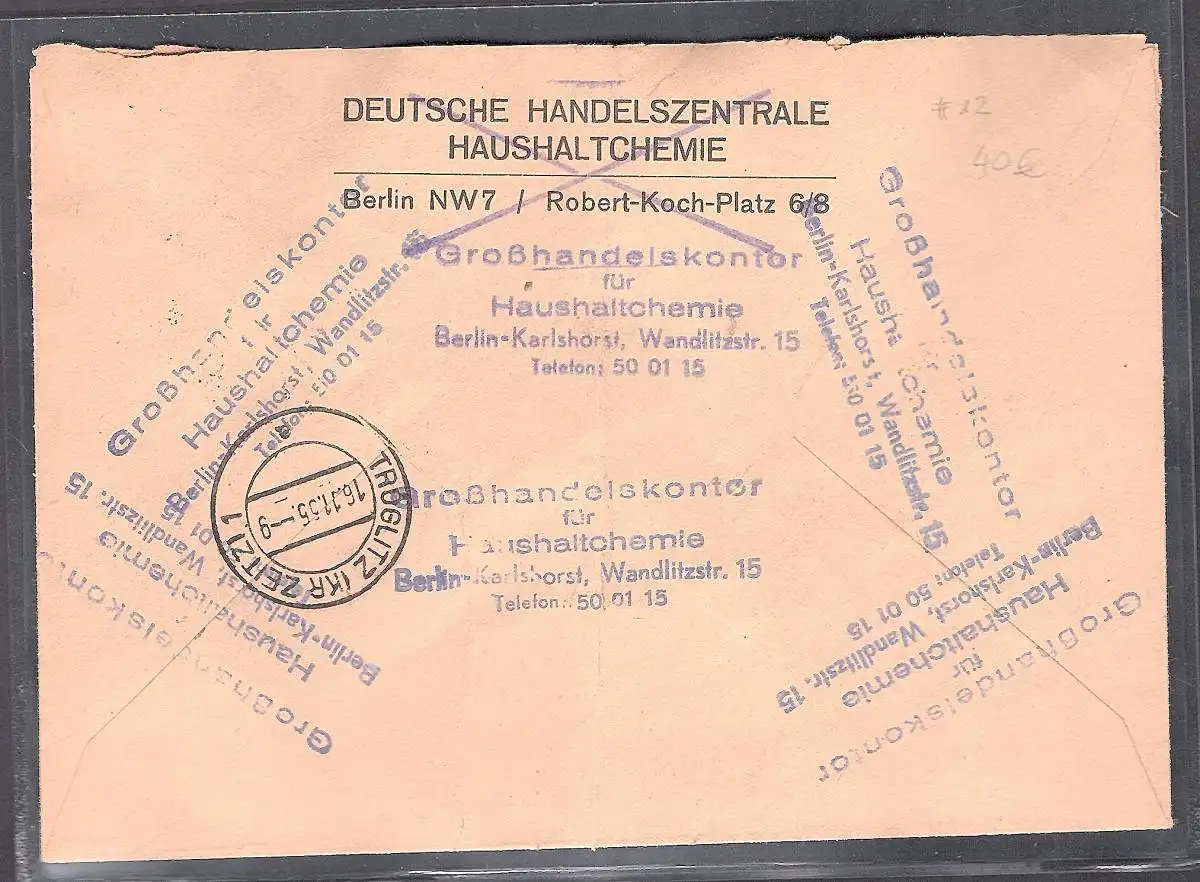 DEUTSCHE HANDELSZENTRALE
HAUSHALTCHEMIE
Berlin NW7 / Robert-Koch-Platz 6/8
#12
40€
Großhandelskontor
für
Haushaltchemie
Berlin-Karlshorst, Wandlitzstr. 15
Telefon: 50 01 15
Großhandelskontor
für
Haushaltchemie
Berlin-Karlshorst, Wandlitzstr. 15
Telefon: 50 01 15
Großhandelskontor
für
Haushaltchemie
Berlin-Karlshorst, Wandlitzstr. 15
Telefon: 50 01 15
TRÖGLITZ (KR ZEITZ) 1
16.11.55.--9
a
Großhandelskontor
für
Haushaltchemie
Berlin-Karlshorst, Wandlitzstr. 15
Telefon: 50 01 15
Großhandelskontor
Haushaltchemie
Berlin-Karlshorst, Wandlitzstr. 15
01 15
Großhandelskontor
für
Haushaltchemie
Berlin-Karlshorst, Wandlitzstr. 15
Telefon: 50 01 15